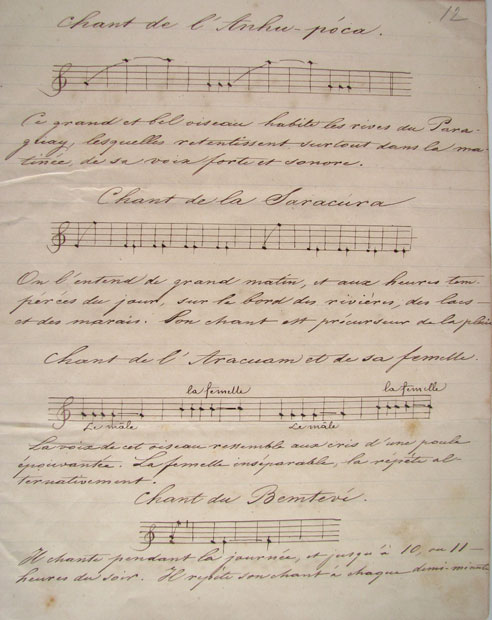 12
Chant de l'Anhu-póca.
Ce grand et bel oiseau habite les rives du Para-
guay, lesquelles retentissent surtout dans la ma-
tinée, de sa voix forte et sonore.
Chant de la Saracúra
On l'entend de grand matin, et aux heures tem-
pérées du jour, sur le bord des rivières, des lacs
et des marais. Son chant est précurseur de la pluie
Chant de l'Aracuam et de sa femelle.
la femelle la femelle
Le mâle Le mâle
La voix de cet oiseau ressemble aux cris d'une poule
épouvantée. La femelle inséparable, la répète al-
ternativement.
Chant du Bemtevé.
Il chante pendant la journée, et jusqu'à 10 ou 11
heures du soir. Il répète son chant à chaque demi-minute